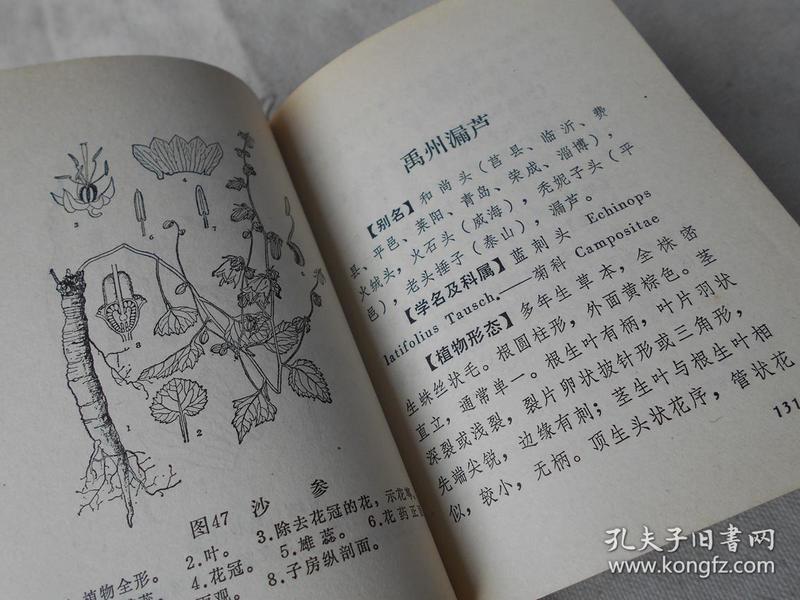 3
6
7
8
1
2
图47 沙参
植物全形。 2.叶。 3.除去花冠的花,示花萼、
蕊。 4.花冠。 5.雄蕊。 6.花药正
面观。 8.子房纵剖面。
禹州漏芦
【别名】和尚头(莒县、临沂、费
县、平邑、莱阳、青岛、荣成、淄博),
火绒头,火石头(威海),秃妮子头(平
邑),老头捶子(泰山),漏芦。
【学名及科属】蓝刺头 Echinops
latifolius Tausch.——菊科 Compositae
【植物形态】多年生草本,全株密
生蛛丝状毛。根圆柱形,外面黄棕色。茎
直立,通常单一。根生叶有柄,叶片羽状
深裂或浅裂,裂片卵状披针形或三角形,
先端尖锐,边缘有刺;茎生叶与根生叶相
似,较小,无柄。顶生头状花序,管状花
131
孔夫子旧书网
www.kongfz.com